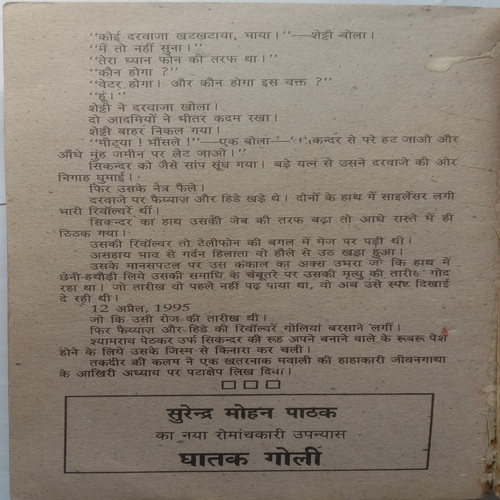 "कोई दरवाजा खटखटाया, भाया।"—शेट्टी बोला।
"मैं तो नहीं सुना।"
"तेरा ध्यान फोन की तरफ था।"
"कौन होगा ?"
"वेटर होगा। और कौन होगा इस वक्त ?"
"हूं।"
शेट्टी ने दरवाजा खोला।
दो आदमियों ने भीतर कदम रखा।
शेट्टी बाहर निकल गया।
"मौट्या ! भौंसले !"—एक बोला—"सिकन्दर से परे हट जाओ और
औंधे मुंह जमीन पर लेट जाओ।"
सिकन्दर को जैसे सांप सूंघ गया। बड़े यत्न से उसने दरवाजे की ओर
निगाह घुमाई।
फिर उसके नेत्र फैले।
दरवाजे पर फैय्याज और हिडे खड़े थे। दोनों के हाथ में साइलेंसर लगी
भारी रिवॉल्वरें थीं।
सिकन्दर का हाथ उसकी जेब की तरफ बढ़ा तो आधे रास्ते में ही
ठिठक गया।
उसकी रिवॉल्वर तो टेलीफोन की बगल में मेज पर पड़ी थी।
असहाय भाव से गर्दन हिलाता वो हौले से उठ खड़ा हुआ।
उसके मानसपटल पर उस कंकाल का अक्स उभरा जो कि हाथ में
छेनी-हथौड़ी लिये उसकी समाधि के चबूतरे पर उसकी मृत्यु की तारीख गोद
रहा था। जो तारीख वो पहले नहीं पढ़ पाया था, वो अब उसे स्पष्ट दिखाई
दे रही थी।
12 अप्रैल, 1995
जो कि उसी रोज की तारीख थी।
फिर फैय्याज और हिडे की रिवॉल्वरें गोलियां बरसाने लगीं।
श्यामराव पेठकर उर्फ सिकन्दर की रूह अपने बनाने वाले के रूबरू पेश
होने के लिये उसके जिस्म से किनारा कर चली।
तकदीर की कलम ने एक खतरनाक मवाली की हाहाकारी जीवनगाथा
के आखिरी अध्याय पर पटाक्षेप लिख दिया।
सुरेन्द्र मोहन पाठक
का नया रोमांचकारी उपन्यास
घातक गोली